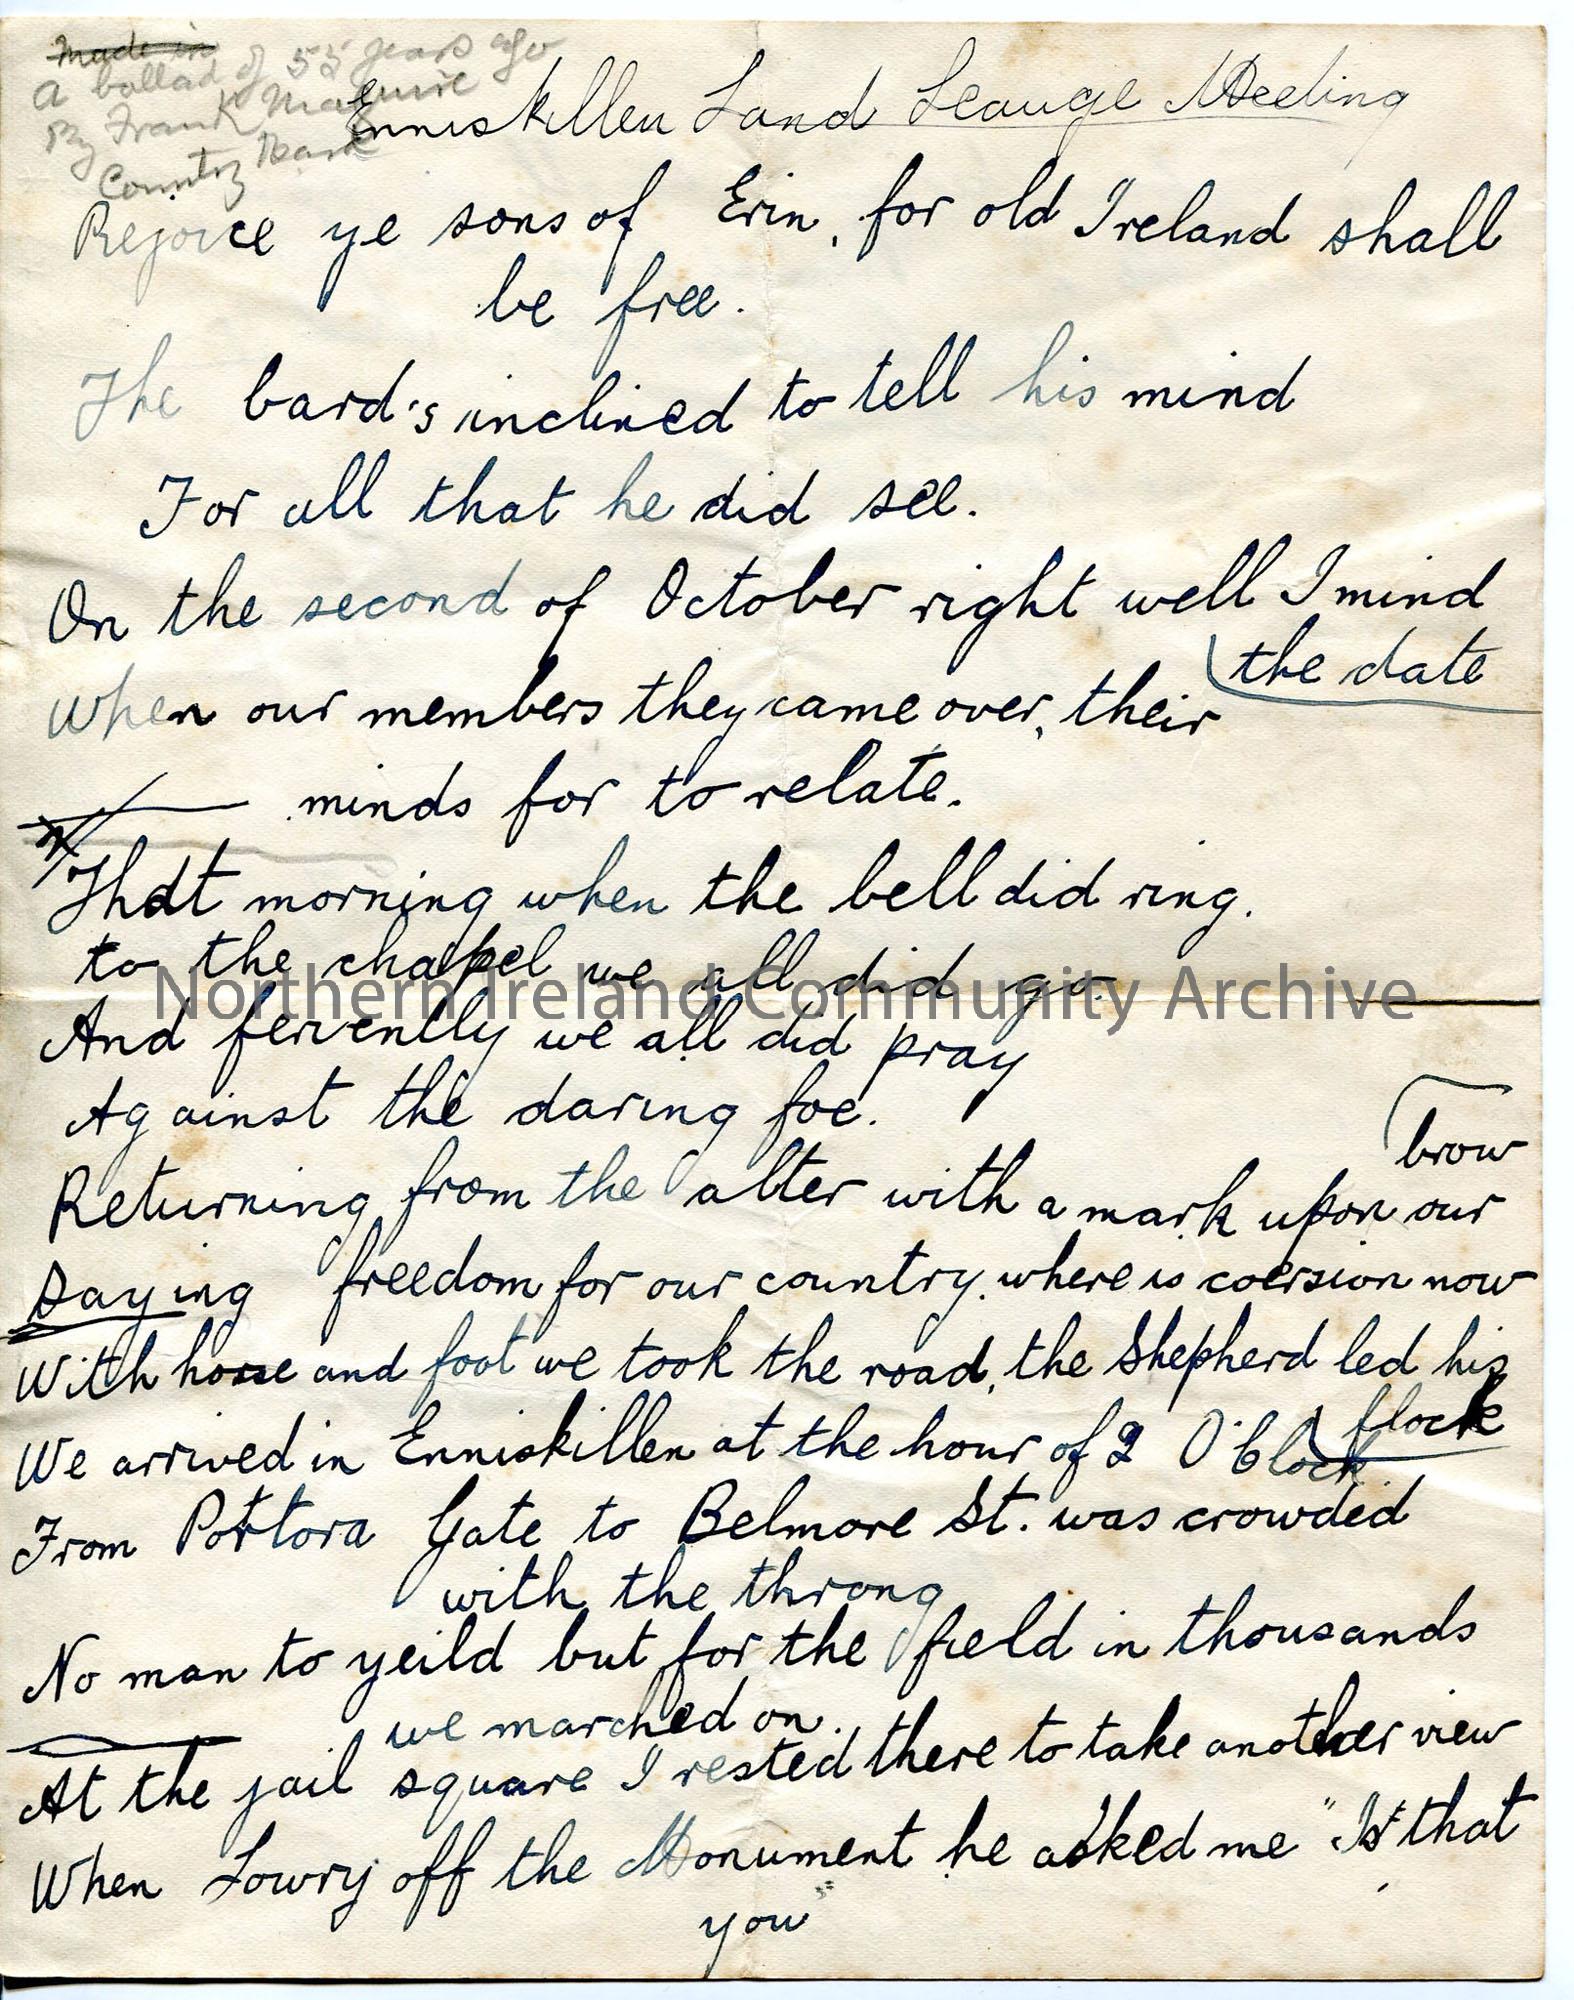 Made in
A ballad of 55 years ago
By Frank Maguire
Country Bard
Enniskillen Land Leauge Meeting
Rejoice ye sons of Erin, for old Ireland shall
be free.
The bard's inclined to tell his mind
For all that he did see.
On the second of October right well I mind
the date
When our members they came over, their
minds for to relate.
That morning when the bell did ring.
to the chapel we all did go.
Northern Ireland Community Archive
And fervently we all did pray
Against the daring foe.
Returning from the alter with a mark upon our
brow
Saying freedom for our country, where is coersion now
With horse and foot we took the road, the Shepherd led his
flock
We arrived in Enniskillen at the hour of 2 O'Clock
From Portora Gate to Belmore St. was crowded
with the throng
No man to yeild but for the field in thousands
we marched on.
At the jail square I rested there to take another view
When Lowry off the Monument he asked me "Is that
you"